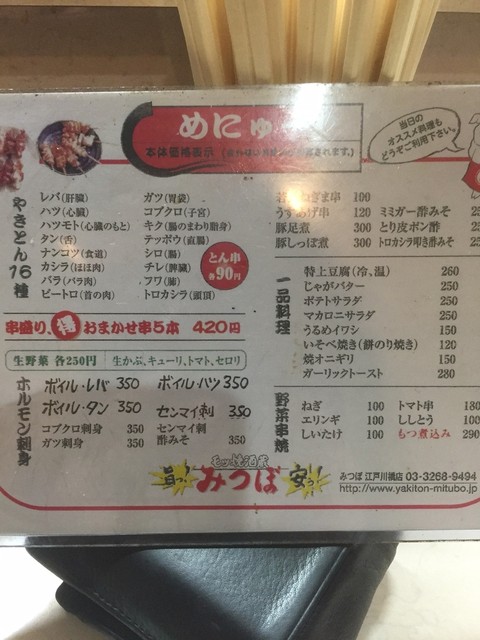 めにゅ
本体価格表示
当日の
オススメ料理も
どうぞご利用下さい。
やきとん16種
レバ(肝臓)
ハツ(心臓)
ハツモト(心臓のもと)
タン(舌)
ナンコツ(食道)
カシラ(ほほ肉)
バラ(バラ肉)
ピートロ(首の肉)
ガツ(胃袋)
コブクロ(子宮)
キク(腸のまわり脂身)
テッポウ(直腸)
シロ(腸)
チレ(脾臓)
フワ(肺)
トロカシラ(頭頂)
とん串
各90円
串盛り、得 おまかせ串5本 420円
生野菜 各250円 生かぶ、キューリ、トマト、セロリ
ホルモン刺身
ボイル・レバ 350
ボイル・タン 350
コブクロ刺身 350
ガツ刺身 350
ボイル・ハツ 350
センマイ刺 350
センマイ刺
酢みそ 350
ねぎま串 100
うずあげ串 120
豚足煮 300
豚しっぽ煮 300
ミミガー酢みそ
とり皮ポン酢
トロカシラ叩き酢みそ
一品料理
特上豆腐(冷、温) 260
じゃがバター 250
ポテトサラダ 250
マカロニサラダ 250
うるめイワシ 150
いそべ焼き(餅のり焼き) 120
焼オニギリ 150
ガーリックトースト 280
野菜串焼
ねぎ 100
エリンギ 100
しいたけ 100
トマト串 180
ししとう 100
もつ煮込み 290
モツ焼酒蔵
旨っ! みつぼ 安っ!
みつぼ 江戸川橋店 03-3268-9494
http://www.yakiton-mitubo.jp/